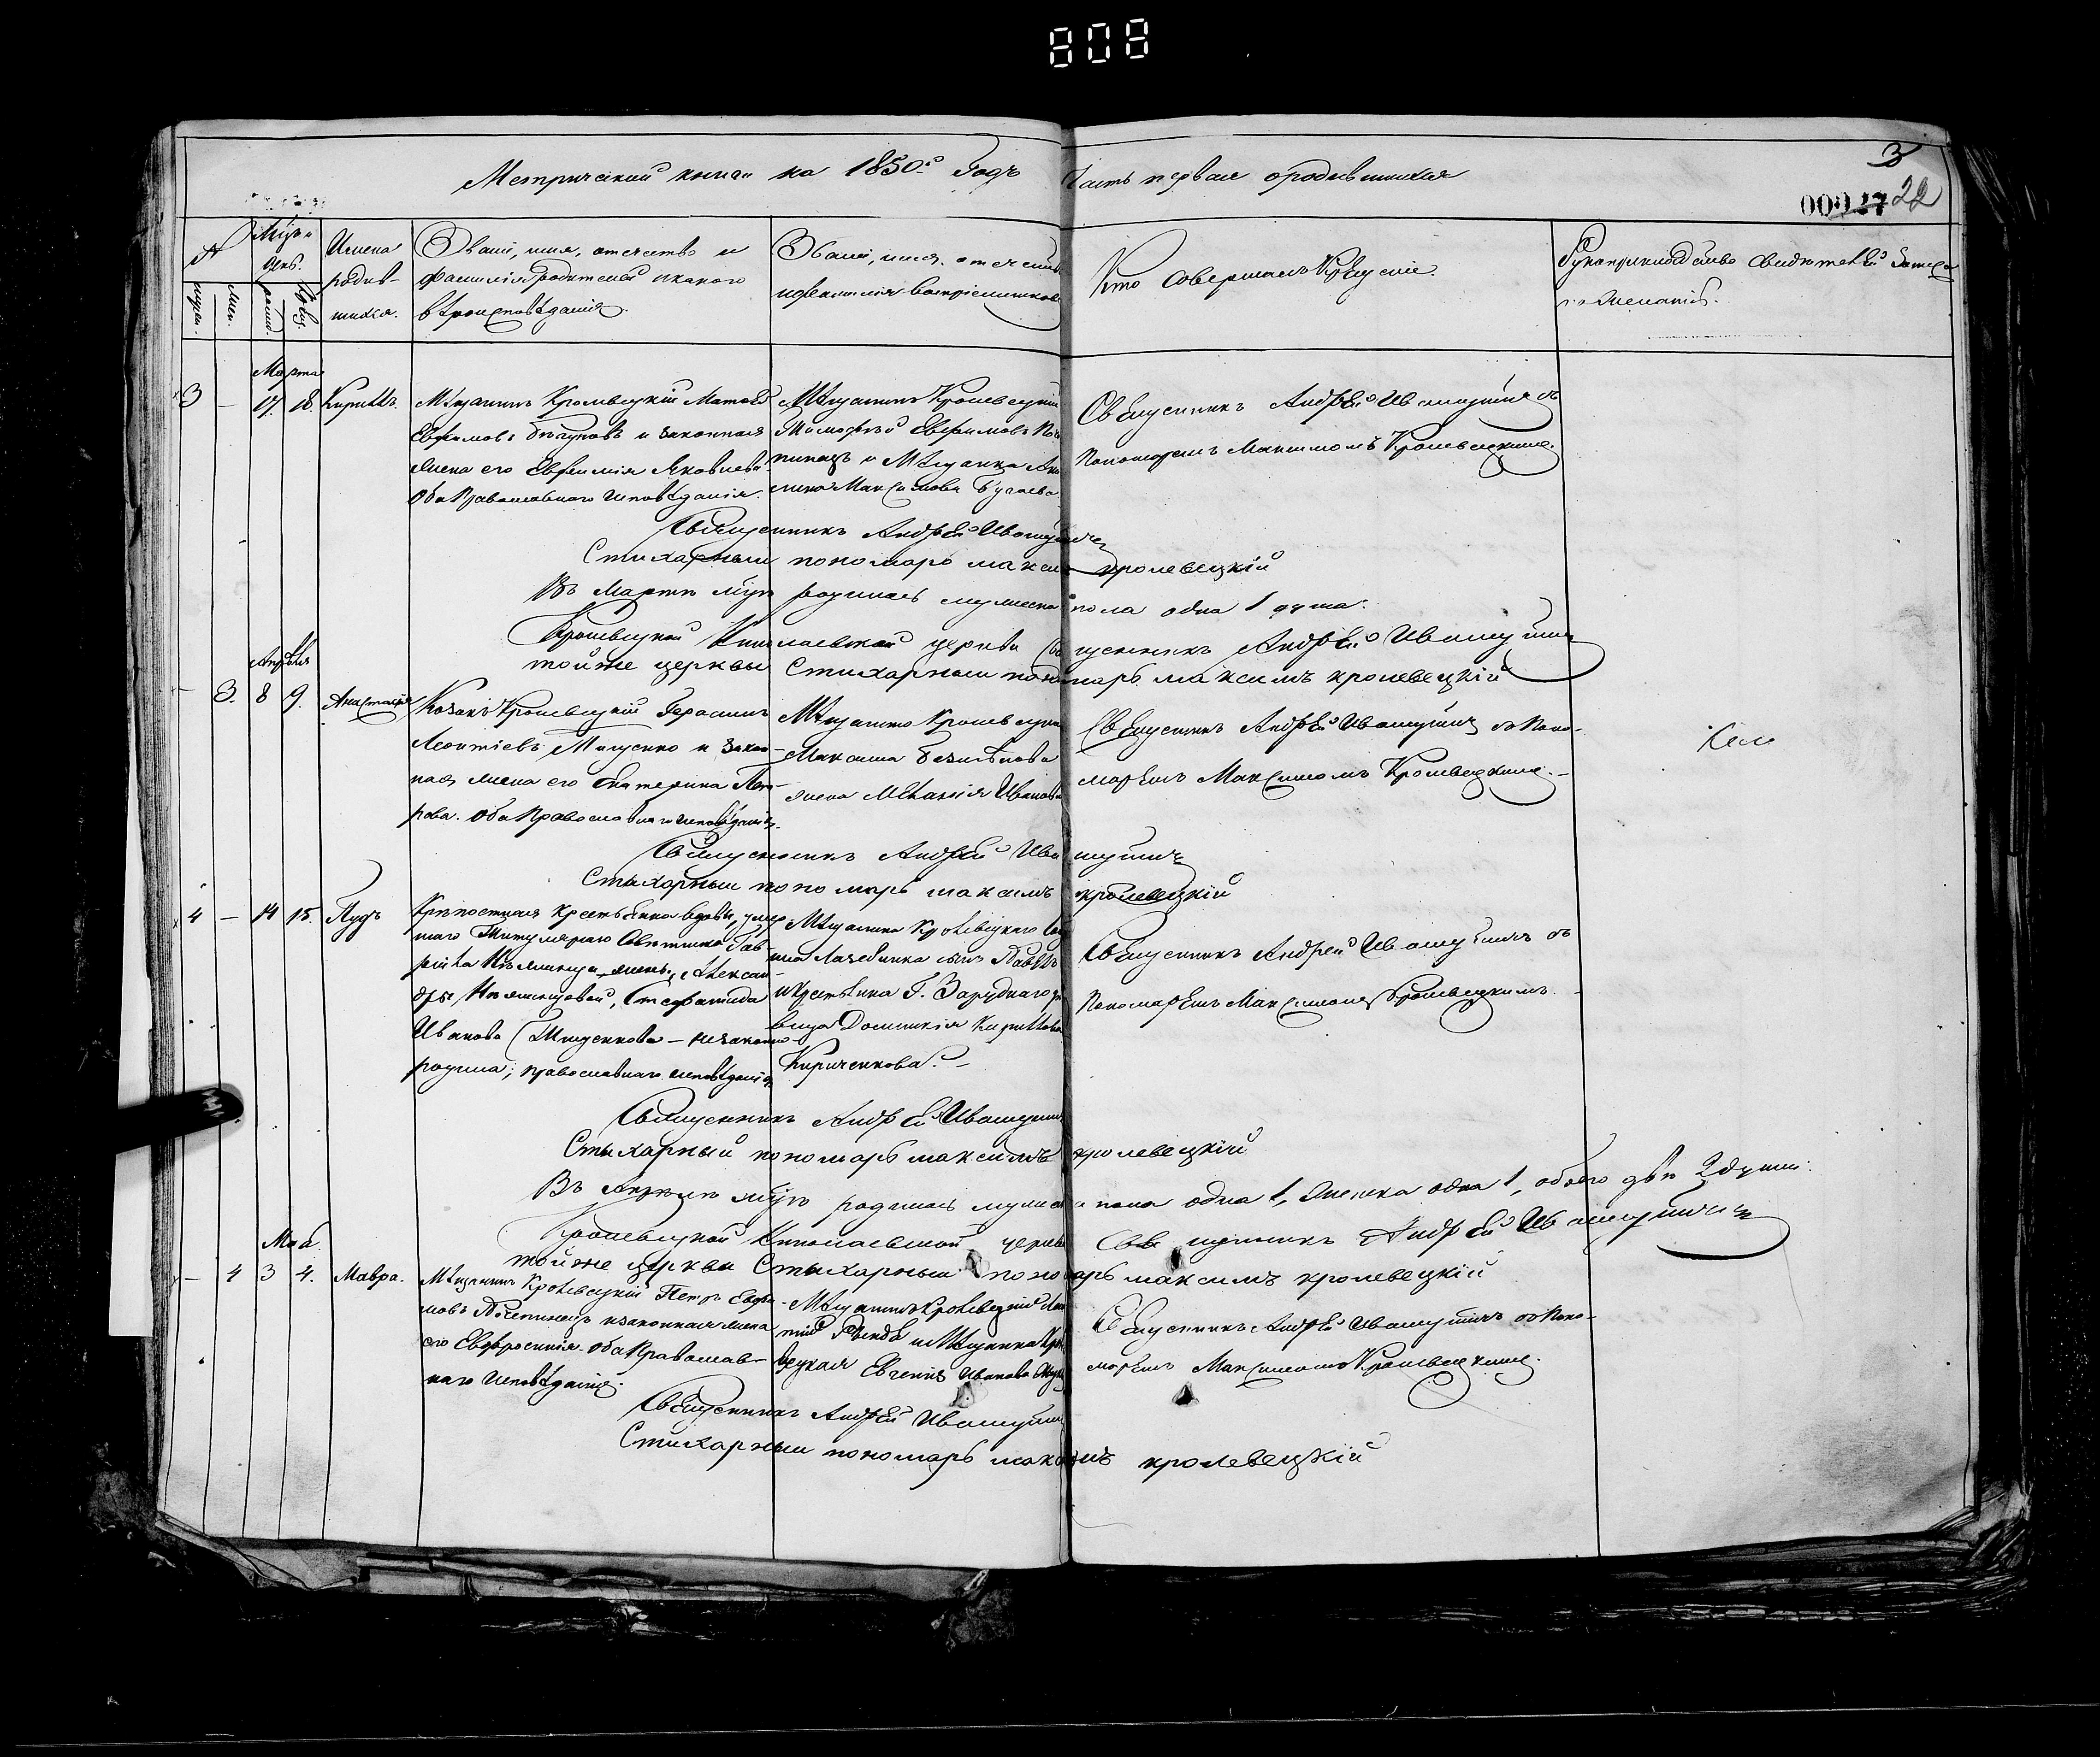 808
Метрической книги на 1850й Годъ Часть первая о родившихся
3
22
Мѣсяцъ
день.
Имена
родив-
шихся.
Званіе, имя, отечество и
фамилія родителей и какого
вѣроисповѣданія.
Званіе, имя, отечество
и фамилія воспріемниковъ
Кто совершалъ Крещеніе.
Рукоприкладство свидѣтелей записи
по желанію.
мужес.
жен.
рожд.
крещ.
Марта
3 — 17. 18. Кириллъ.
Мѣщанинъ Кролевецкій Матвей
Евфимовъ и законная
жена его Евфимія Яковлева
оба Православнаго исповѣданія.
Мѣщанинъ Кролевецкій
Тимофей Евфимовъ
и Мѣщанка
Максимова Бугаева
Священникъ Андрей Ивашутичъ съ
Пономаремъ Максимомъ Кролевецкимъ.
Священникъ Андрей Ивашутичъ
Стихарный пономарь максимъ кролевецкій
Въ Мартѣ мѣсяцѣ родилась мужеска пола одна 1 душа.
Кролевецкой Николаевской церкви Священникъ Андрей Ивашутичъ
тойже церквы Стихарный пономарь максимъ кролевецкій
Апрѣля
— 3. 8 9. Анастасія
Козакъ Кролевецкій Герасимъ
Леонтіевъ Мищенко и закон-
ная жена его Екатерина Пет-
рова. оба Православнаго исповѣданія.
Мѣщанина Кролевецкаго
Максима
жена Меланія Иванова
Священникъ Андрей Ивашутичъ съ Поно-
маремъ Максимомъ Кролевецкимъ.—
Священникъ Андрей Ивашутичъ
Стихарный пономарь максимъ кролевецкій
4 — 14 15. Пудъ
Крѣпостная крестьянка вдовы, умер-
шаго Титулярнаго Совѣтника Гав-
ріила жены, Алексан-
дры , Стефанида
Иванова — незаконно
родила, православнаго исповѣданія.
Мѣщанина Кролевецкаго
сынъ Павелъ
и крестьянка Г. Заруднаго
вдова Домникія Кириллова
Кириченкова.—
Священникъ Андрей Ивашутичъ съ
Пономаремъ Максимомъ Кролевецкимъ.
Священникъ Андрей Ивашутичъ
Стихарный пономарь максимъ кролевецкій
Въ Апрѣлѣ мѣсяцѣ родилась мужеска пола одна 1, Женска одна 1, обоего двѣ 2 души.
Кролевецкой Николаевской церкви Священникъ Андрей Ивашутичъ
тойже церкви Стихарный пономарь максимъ кролевецкій
Маія
— 4 3 4. Мавра.
Мѣщанинъ Кролевецкій Петръ Евфи-
мовъ и законная жена
его Евфросинія. оба Православ-
наго исповѣданія.
Мѣщанинъ Кролевецкій
и Мѣщанка Кроле-
вецкая Евгенія Иванова
Священникъ Андрей Ивашутичъ съ Поно-
маремъ Максимомъ Кролевецкимъ.
Священникъ Андрей Ивашутичъ
Стихарный пономарь максимъ кролевецкій